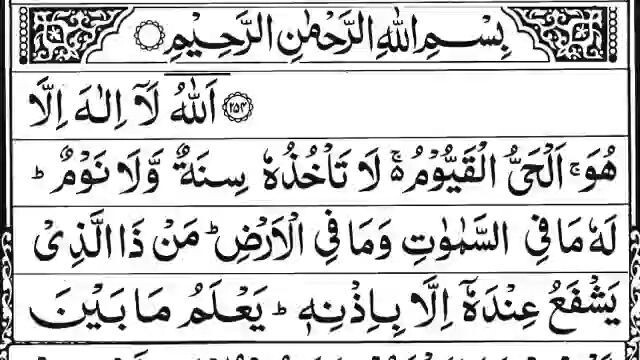 بِسْمِ اللهِ الرَّحْمٰنِ الرَّحِيْمِ
﴿۲۵۴﴾ اَللهُ لَاۤ اِلٰهَ اِلَّا
هُوَ ۚ اَلْحَیُّ الْقَیُّوْمُ ۬ۚ لَا تَاْخُذُهٗ سِنَةٌ وَّلَا نَوْمٌ ؕ
لَهٗ مَا فِی السَّمٰوٰتِ وَمَا فِی الْاَرْضِ ؕ مَنْ ذَا الَّذِیْ
یَشْفَعُ عِنْدَهٗۤ اِلَّا بِاِذْنِهٖ ؕ یَعْلَمُ مَا بَیْنَ